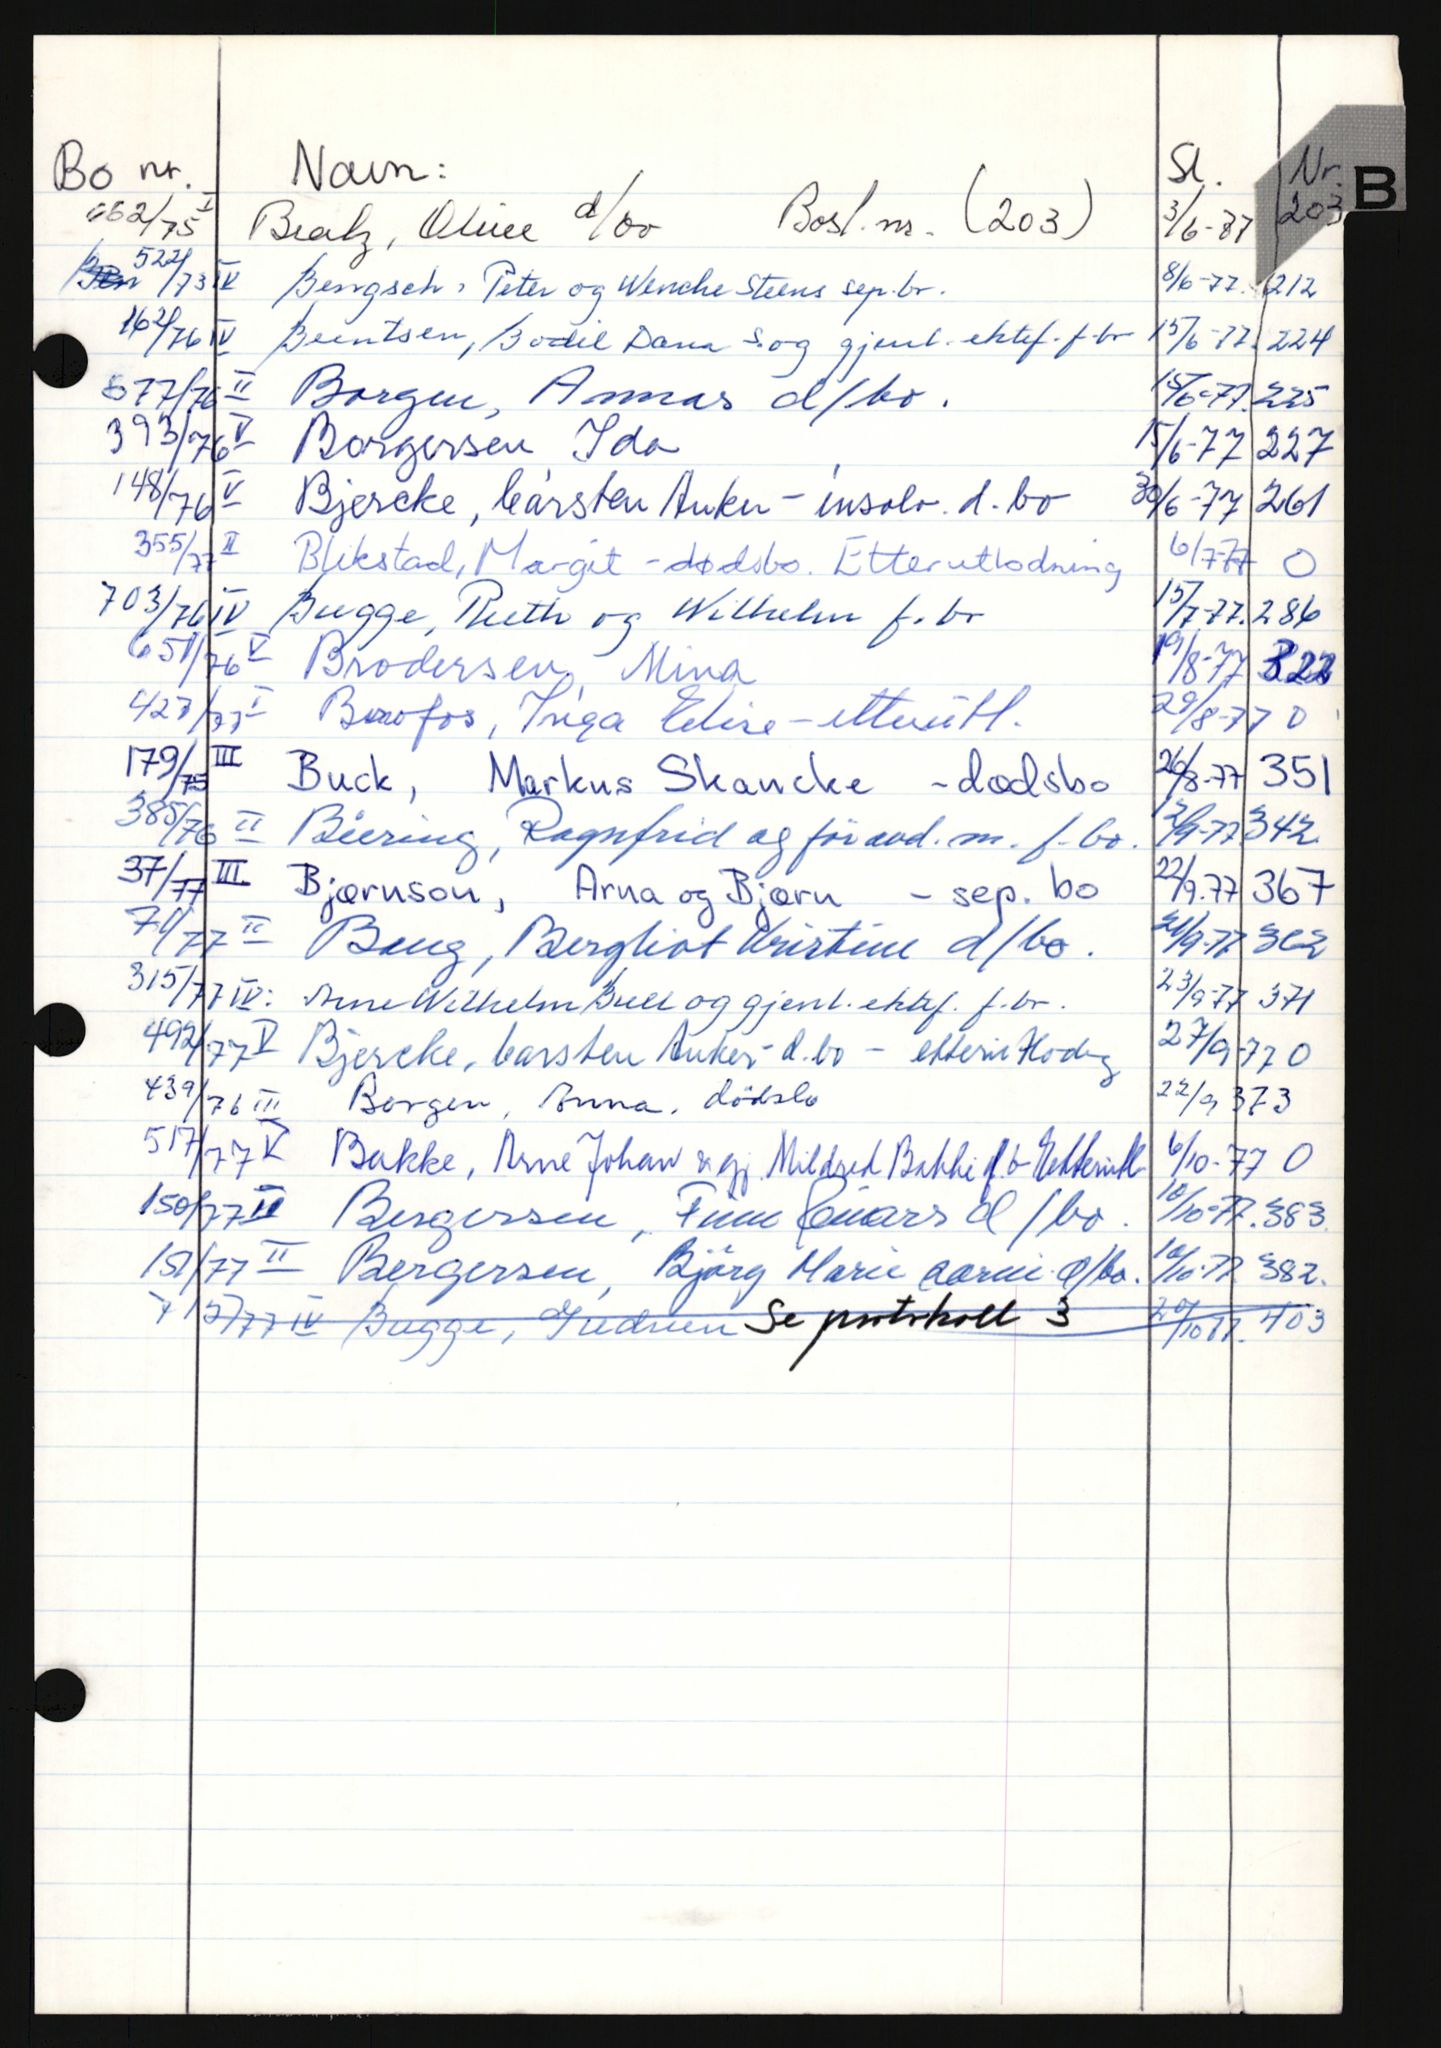 Bo nr. Navn: Sl. Nr. B
662/75 I d/bo Bosl. nr. (203) 3/6-77 203
522/73 IV Bengsch, Peter og Wenche Steens sep.br. 8/6-77. 212
162/76 IV Berntsen, Bodil Dana S. og gjenl. ektef. f.br 15/6-77. 224
577/76 II Borgen, Annas d/bo. 15/6-77. 225
393/76 V Borgersen Ida 15/6-77 227
148/76 V Bjercke, Carsten Anker - insolv. d. bo 30/6-77 261
355/77 II Blikstad, Margit - dødsbo. Etterutlodning 6/7-77 0
703/76 IV Bugge, Ruth og Wilhelm f. br 15/7-77. 286
651/76 V Brodersen, Mina 19/8-77 322
427/77 I Inga Elise - etterutl. 29/8-77 0
179/75 III Buck, Markus Skancke - dødsbo 26/8-77 351
385/76 II Biering, Ragnfrid og föravd. m. f. bo. 12/9-77 342
37/77 III Bjørnson, Arna og Bjørn - sep. bo 22/9.77 367
71/77 II Bergliot Kristine d/bo. 21/9-77 362
315/77 IV: Arne Wilhelm Bull og gjenl. ektef. f. br. 23/9-77 371
492/77 V Bjercke, Carsten Anker - d. bo - etterutlodng 27/9-77 0
439/76 III Borgen, Anna, dödsbo 22/9 373
517/77 V Bakke, Arne Johan & gj. Mildred Bakke f. b Etterutl 6/10-77 0
150/77 II Bergersen, Finn Einars d/bo. 10/10-77. 383.
151/77 II Bergersen, Björg Marie d/bo. 10/10-77. 382.
715/77 IV Bugge, Gudrun Se protokoll 3 20/10 77. 403